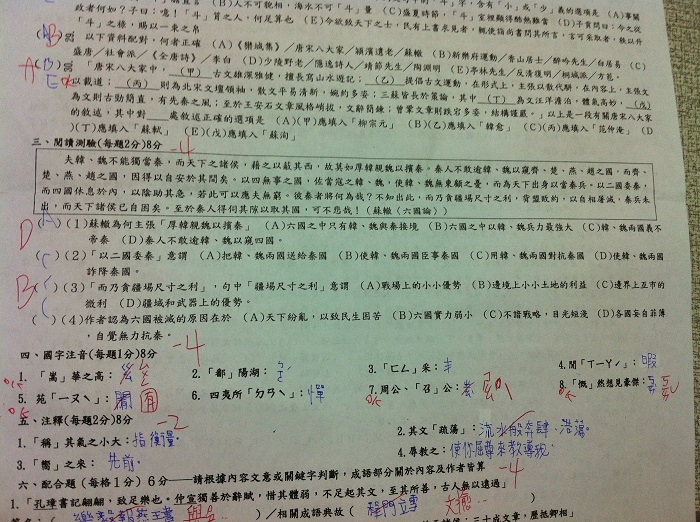 斗」之祿，賜以一束之帛
以下資料配對，何者正確 (A)《欒城集》／唐宋八大家／穎濱遺老／蘇轍 (B)新樂府運動／香山居士／醉吟先生／白居易
盛唐／社會派／《全唐詩》／李白 (D)少陵野老／隱逸詩人／靖節先生／陶淵明 (E)亭林先生／反清復明／桐城派／方苞。
「唐宋八大家中，(甲)古文雄深雅健，擅長寫山水遊記；(乙)提倡古文運動，在形式上，主張以散代駢，在內容上，主張文
以載道；(丙)則為北宋文壇領袖，散文平易清新，婉約多姿；三蘇皆長於策論，其中(丁)為文汪洋澹泊，體氣高妙，(戊)
為文則古勁簡直，有先秦之風；至於王安石文章風格峭拔，文辭簡鍊；曾鞏文章則跌宕多姿，結構謹嚴。」以上是一段有關唐宋八大家
的敘述，其中對___處敘述正確的選項是 (A)(甲)應填入「柳宗元」 (B)(乙)應填入「韓愈」 (C)(丙)應填入「范仲淹」 (D
)(丁)應填入「蘇軾」 (E)(戊)應填入「蘇洵」
三、閱讀測驗(每題2分)8分 -4
夫韓、魏不能獨當秦，而天下之諸侯，藉之以蔽其西，故莫如厚韓親魏以擯秦。秦人不敢逾韓、魏以窺齊、楚、燕、趙之國，而齊、
楚、燕、趙之國，因得以自安於其間矣。以四無事之國，佐當寇之韓、魏，使韓、魏無東顧之憂，而為天下出身以當秦兵。以二國委秦，
而四國休息於內，以陰助其急，若此可以應夫無窮。彼秦者將何為哉？不知出此，而乃貪疆埸尺寸之利，背盟敗約，以自相屠滅，秦兵未
出，而天下諸侯已自困矣。至於秦人得伺其隙以取其國，可不悲哉！（蘇轍〈六國論〉）
( )(1)蘇轍為何主張「厚韓親魏以擯秦」 (A)六國之中只有韓、魏與秦接境 (B)六國之中以韓、魏兵力最強大 (C)韓、魏兩國義不
帝秦 (D)秦人不敢逾韓、魏以窺四國。
( )(2)「以二國委秦」意謂 (A)把韓、魏兩國送給秦國 (B)使韓、魏兩國臣事秦國 (C)用韓、魏兩國對抗秦國 (D)使韓、魏兩國
詐降秦國。
( )(3)「而乃貪疆埸尺寸之利」，句中「疆埸尺寸之利」意謂 (A)戰場上的小小優勢 (B)邊境上小小土地的利益 (C)邊界上互市的
微利 (D)疆域和武器上的優勢。
( )(4)作者認為六國被滅的原因在於 (A)天下紛亂，以致民生困苦 (B)六國實力弱小 (C)不諳戰略，目光短淺 (D)各國妄自菲薄
，自覺無力抗秦。
四、國字注音(每題1分)8分 -4
1.「嵩」華之高： 2.「鄱」陽湖： 3.「ㄈㄥ」采：丰 4.閒「ㄒㄧㄚˊ」：暇
5. 苑「ㄧㄡˋ」：囿 6. 四夷所「ㄉㄢˋ」：憚 7.周公、「召」公： 8.「慨」然想見豪傑：
五、注釋(每題2分)8分 -2
1.「稱」其氣之小大：指衡量。 2.其文「疏蕩」：流水般奔肆、浩蕩。
3.「嚮」之來：先前。 4.辱教之：使你屈尊來教導我
六、配合題(每格1分) 6分——請根據內容文意或關鍵字判斷，成語部分關於內容及作者皆算 -4
1.「孔璋書記翩翩，致足樂也。仲宣獨善於辭賦，惜其體弱，不足起其文，至其所善，古人無以遠過」
)／相關成語典故（程門立雪）